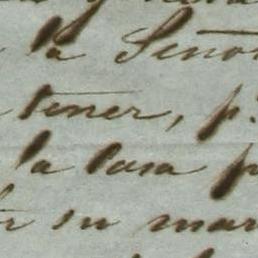 la Señor
tener, p.
la casa p
su mar